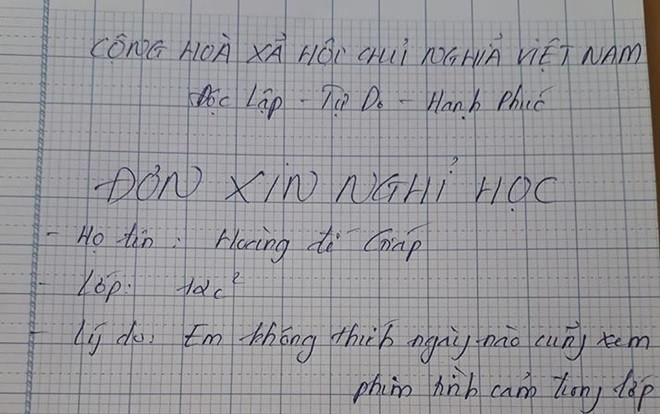 CÔNG HOÀ XÃ HỘI CHỦ NGHĨA VIỆT NAM
Độc Lập - Tự Do - Hạnh Phúc
ĐƠN XIN NGHỈ HỌC
- Họ tên : Hoàng
- Lớp: 12c²
- Lý do: Em không thích ngày nào cũng xem
phim tình cảm trong lớp